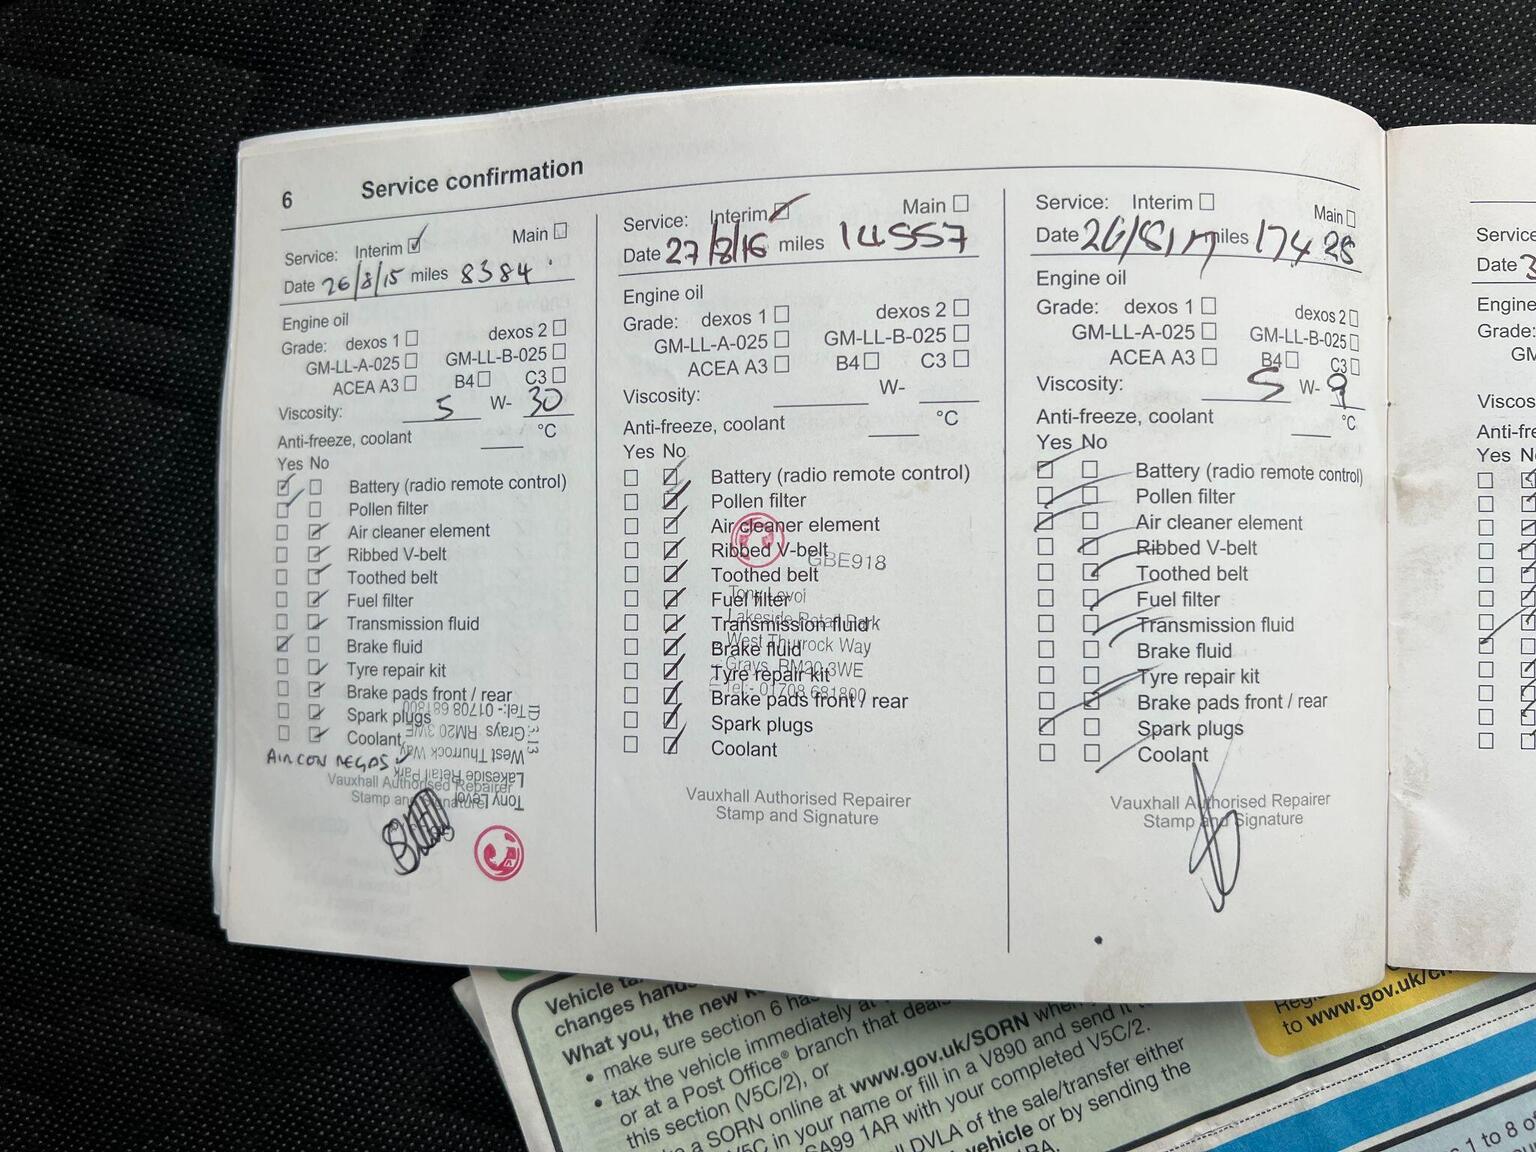 6 Service confirmation
Service: Interim Main
Date 26/8/15 miles 8384
Engine oil
Grade: dexos 1 dexos 2
GM-LL-A-025 GM-LL-B-025
ACEA A3 B4 C3
Viscosity: 5 W- 30
Anti-freeze, coolant °C
Yes No
Battery (radio remote control)
Pollen filter
Air cleaner element
Ribbed V-belt
Toothed belt
Fuel filter
Transmission fluid
Brake fluid
Tyre repair kit
Brake pads front / rear
Spark plugs
Coolant
AIR CON REGAS
Vauxhall Authorised Repairer
Stamp and Signature
Tel:- 01708 681800
Grays RM20 3WE
West Thurrock Way
Lakeside Retail Park
Tony Levoi
Service: Interim Main
Date 27/8/16 miles 14557
Engine oil
Grade: dexos 1 dexos 2
GM-LL-A-025 GM-LL-B-025
ACEA A3 B4 C3
Viscosity: W-
Anti-freeze, coolant °C
Yes No
Battery (radio remote control)
Pollen filter
Air cleaner element
Ribbed V-belt
Toothed belt
Fuel filter
Transmission fluid
Brake fluid
Tyre repair kit
Brake pads front / rear
Spark plugs
Coolant
GBE918
Tony Levoi
Lakeside Retail Park
West Thurrock Way
Grays RM20 3WE
Tel:- 01708 681800
Vauxhall Authorised Repairer
Stamp and Signature
Service: Interim Main
Date 26/8/17 miles 17428
Engine oil
Grade: dexos 1 dexos 2
GM-LL-A-025 GM-LL-B-025
ACEA A3 B4 C3
Viscosity: 5 W-
Anti-freeze, coolant °C
Yes No
Battery (radio remote control)
Pollen filter
Air cleaner element
Ribbed V-belt
Toothed belt
Fuel filter
Transmission fluid
Brake fluid
Tyre repair kit
Brake pads front / rear
Spark plugs
Coolant
Vauxhall Authorised Repairer
Stamp and Signature
Service
Date 3
Engine
Grade:
GM
Viscos
Anti-fr
Yes N
Vehicle ta
changes hands
What you, the new k
• make sure section 6 has
• tax the vehicle immediately at
or at a Post Office® branch that deals
this section (V5C/2), or
a SORN online at www.gov.uk/SORN when
V5C in your name or fill in a V890 and send it to
SA99 1AR with your completed V5C/2.
DVLA of the sale/transfer either
vehicle or by sending the
Regi
to www.gov.uk/ch
1 to 8 of